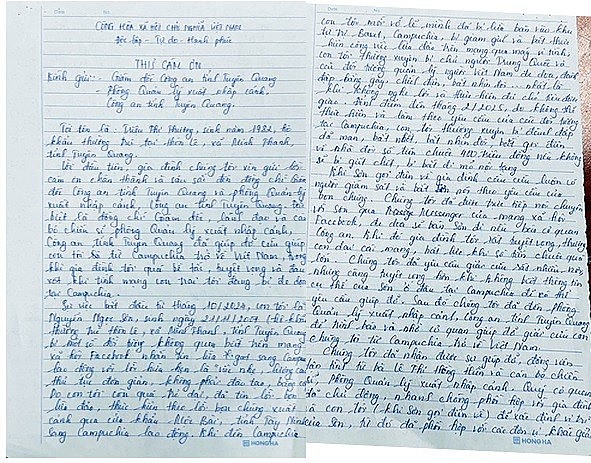 CỘNG HÒA XÃ HỘI CHỦ NGHĨA VIỆT NAM
Độc lập - Tự do - Hạnh phúc
THƯ CẢM ƠN
Kính gửi: - Giám đốc Công an tỉnh Tuyên Quang
Phòng Quản lý xuất nhập cảnh,
Công an tỉnh Tuyên Quang.
Tôi tên là: Triệu Thị Phường, sinh năm 1982, hộ
khẩu thường trú tại: thôn, xã Minh Thanh,
tỉnh Tuyên Quang.
Lời đầu tiên, gia đình chúng tôi xin gửi lời
cảm ơn chân thành và sâu sắc đến đồng chí Giám
đốc Công an tỉnh Tuyên Quang và phòng Quản lý
xuất nhập cảnh, Công an tỉnh Tuyên Quang. Đặc
biệt là đồng chí Giám đốc, lãnh đạo và cán
bộ chiến sĩ phòng Quản lý xuất nhập cảnh,
Công an tỉnh Tuyên Quang đã giúp đỡ cứu giúp
con tôi từ Campuchia trở về Việt Nam, trong
khi gia đình tôi quá bế tắc, tuyệt vọng và đau
xót khi tính mạng con trai tôi đang bị đe dọa
tại Campuchia.
Sự việc bắt đầu từ tháng 10/2024, con tôi là
Nguyễn Ngọc Sơn, sinh ngày (hộ khẩu
thường trú thôn, xã Minh Thanh, tỉnh Tuyên Quang)
bị một số đối tượng không quen biết trên mạng
xã hội Facebook nhắn tin lừa sang Campuchia
lao động với lời hứa hẹn là "việc nhẹ, lương cao"
thủ tục đơn giản, không phải đào tạo, bằng cấp
Do con tôi còn quá trẻ dại, đã tin lời bọn
lừa đảo, thực hiện theo lời bọn chúng xuất
cảnh qua cửa khẩu Mộc Bài, tỉnh Tây Ninh
sang Campuchia lao động. Khi đến Campuchia
HONG HA
con tôi mới vỡ lẽ mình đã bị lừa bán vào khu
tự trị Bavet, Campuchia, bị giam giữ và bắt thực
hiện công việc lừa đảo trên mạng qua máy vi tính,
con tôi thường xuyên bị chủ người Trung Quốc và
các đối tượng quản lý người Việt Nam đe dọa, đánh
đập bằng gậy, chích điện, bắt nhịn đói, nhốt lại
khi không nghe lời và thực hiện đủ chỉ tiêu được
giao. Đỉnh điểm đến tháng 2/2025, do không thể
thực hiện và làm theo yêu cầu của các đối tượng
tại Campuchia, con tôi thường xuyên bị đánh đập
dã man, bắt nhốt, bắt nhịn đói, bắt gọi điện
về nhà đòi số tiền chuộc 400 triệu đồng nếu không
sẽ bị giết chết, bị bắt đi mổ nội tạng.
Khi Sơn gọi điện về gia đình cầu cứu luôn có
người giám sát và bắt Sơn nói theo yêu cầu của
bọn chúng. Chúng tôi đã được trực tiếp nói chuyện
với Sơn qua Messenger của mạng xã hội
Facebook, đe dọa sẽ bán Sơn đi nếu báo cơ quan
Công an. Khi đó gia đình tôi rất tuyệt vọng, thương
con dại cái mang, bất lực khi số tiền chuộc quá
lớn. Chúng tôi đã yêu cầu giúp của rất nhiều nơi
nhưng càng tuyệt vọng hơn khi không biết thông tin
cụ thể của Sơn ở đâu tại Campuchia để có thể
yêu cầu giúp đỡ. Sau đó chúng tôi đã đến Phòng
Quản lý xuất nhập cảnh, Công an tỉnh Tuyên Quang
để trình báo và nhờ cơ quan giúp đỡ giải cứu con
chúng tôi từ Campuchia trở về Việt Nam
Chúng tôi đã nhận được sự giúp đỡ, động viên
tận tình từ bà Lê Thị Hồng Thơm và cán bộ chiến
sĩ, phòng Quản lý xuất nhập cảnh. Quý cơ quan
đã chủ động, nhanh chóng phối hợp với gia đình
và con tôi (khi Sơn gọi điện về) để xác định vị trí
của Sơn, từ đó đã phối hợp với các đơn vị khai
HONG HA